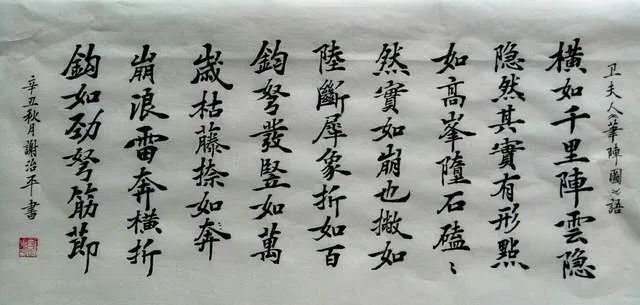 卫夫人筆陣圖之語
橫如千里陣雲隐
隐然其實有形點
如高峯墮石磕〻
然實如崩也撇如
陸斷犀象折如百
鈞弩發豎如萬
歲枯藤捺如奔
崩浪雷奔橫折
鈎如勁弩筋節
辛丑秋月謝治平書